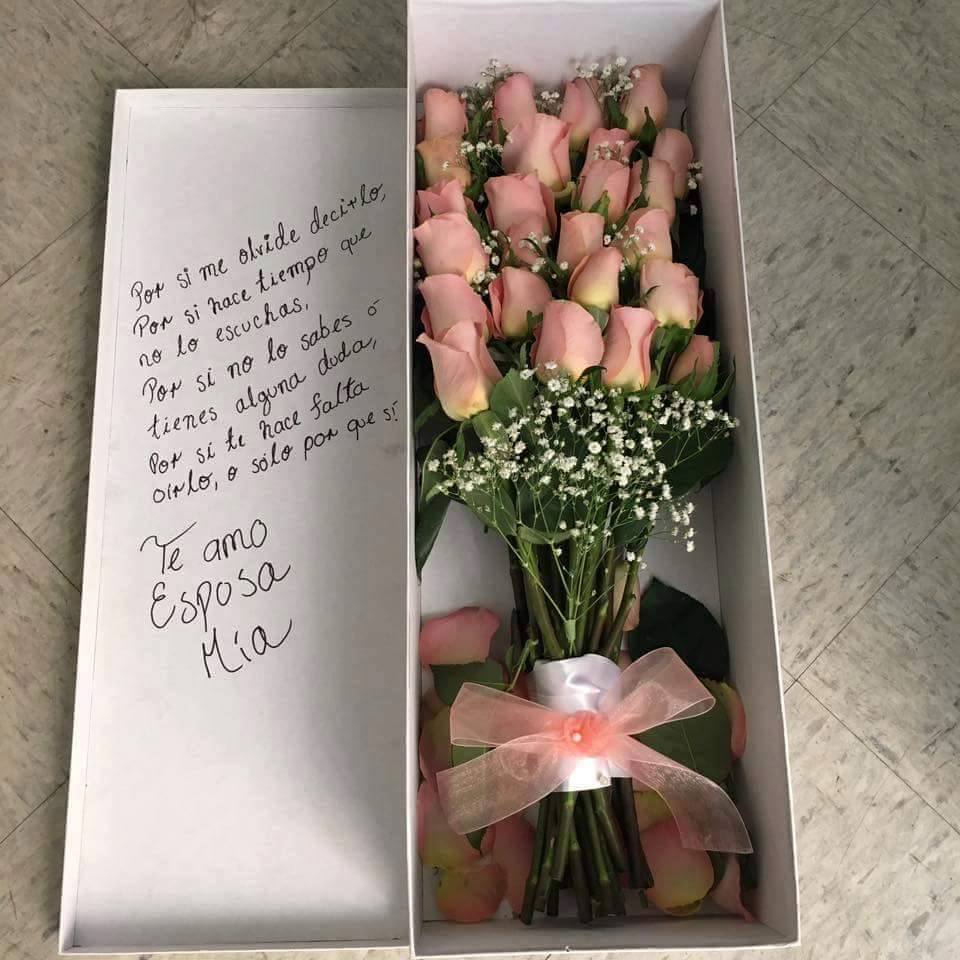 Por si me olvide decirlo,
Por si hace tiempo que
no lo escuchas,
Por si no lo sabes ó
tienes alguna duda,
Por si te hace falta
oirlo, o sólo por que sí!
Te amo
Esposa
Mía